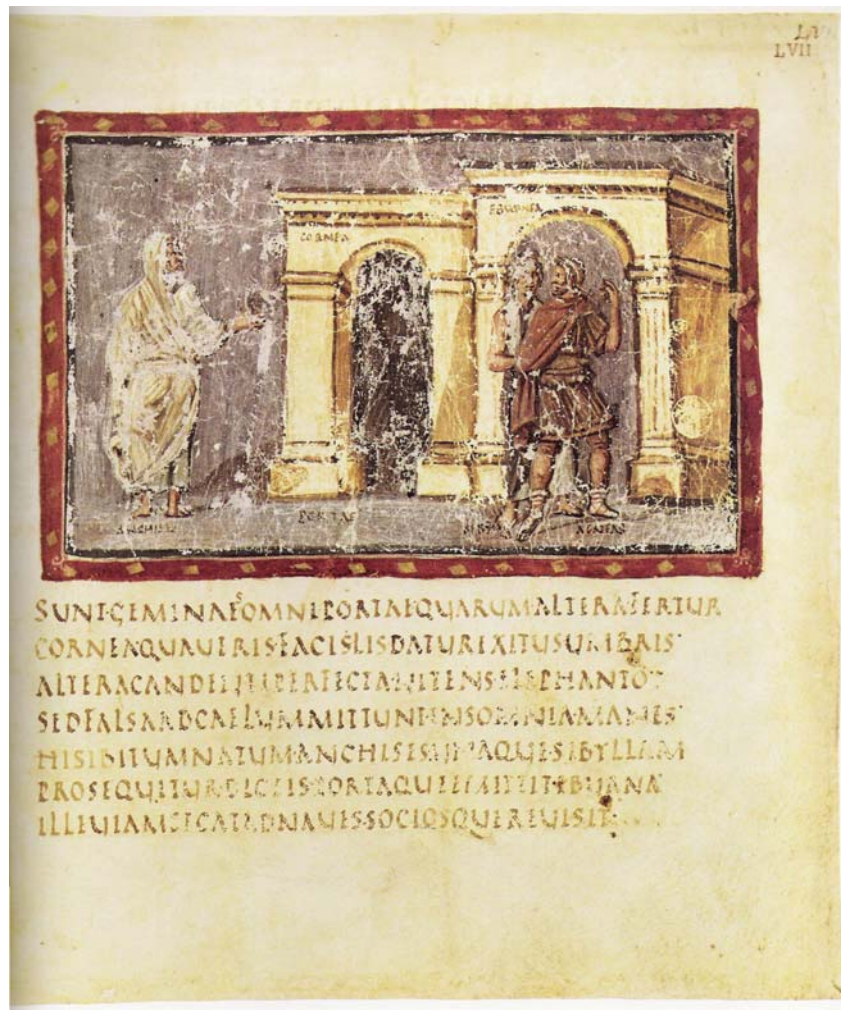 LVII
EBURNEA
CORNEA
ANCHISES
PORTAE
AENEAS
SUNTGEMINAESOMNIPORTAEQUARUMALTERAFERTUR
CORNEAQUAUERISFACISLISDATUREXITUSUMBRIS
ALTERACANDENTIPERFECTANITENSELEPHANTO
SEDFALSAADCAELUMMITTUNTINSOMNIAMANES
HISIBITUMNATUMANCHISESUNAQUESIBYLLAM
PROSEQUITURDICTISPORTAQUEEMITTITEBURNA
ILLEUIAMSECATADNAUESSOCIOSQUEREUISIT